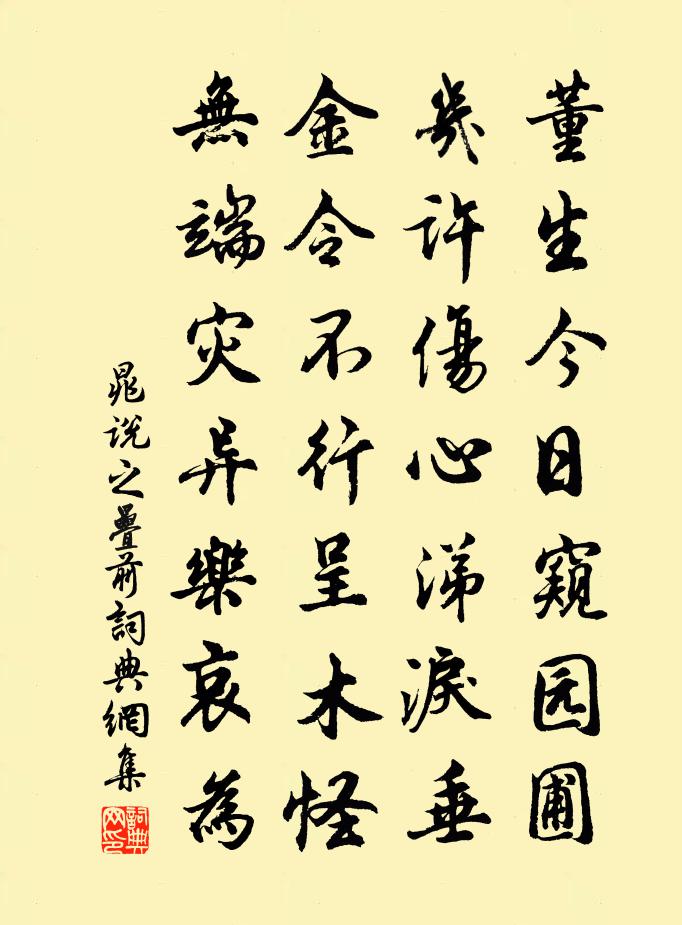 董生今日窺园圃
幾許傷心涕淚垂
金令不行呈木怪
無端灾异樂哀為
晁說之疊前詞典網集
詞典網印